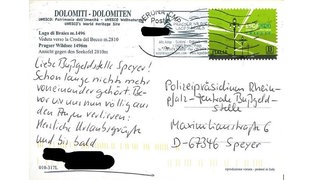 DOLOMITI - DOLOMITEN
UNESCO: Patrimonio dell'Umanità - UNESCO Weltnaturerbe
UNESCO's World Heritage Site
Lago di Braies m.1496
Veduta verso la Croda del Becco m.2810
Pragser Wildsee 1496m
Ansicht gegen den Seekofel 2810m
Liebe Bußgeldstelle Speyer!
Schon lange nichts mehr
voneinander gehört. Be-
vor wir uns nun völlig aus
den Augen verlieren:
Herzliche Urlaubsgrüße
und bis bald
010-317L
ITALIA
B
Polizeipräsidium Rhein-
pfalz - Zentrale Bußgeld-
stelle
Maximilianstraße 6
D-67346 Speyer